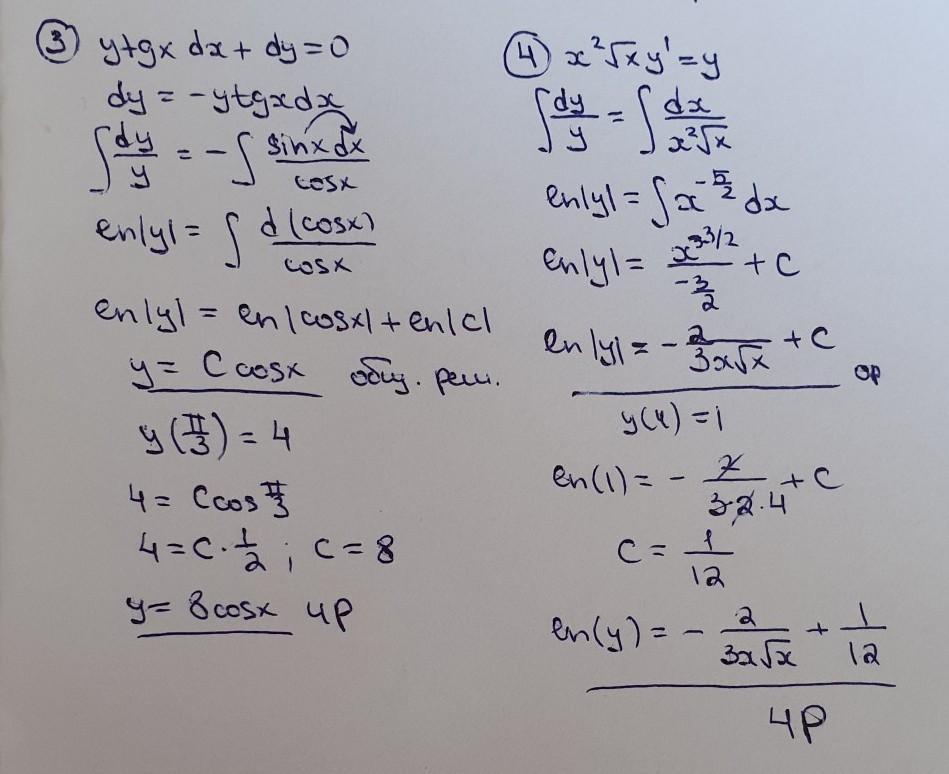 ③ y tgx dx + dy = 0
dy = -y tgx dx
∫ dy/y = -∫ sinx dx / cosx
ln|y| = ∫ d(cosx) / cosx
ln|y| = ln|cosx| + ln|c|
y = C cosx общ. реш.
y(π/3) = 4
4 = C cos π/3
4 = C · 1/2 ; C = 8
y = 8cosx ЧР
④ x²√x y' = y
∫ dy/y = ∫ dx / x²√x
ln|y| = ∫ x^(-5/2) dx
ln|y| = x^(-3/2) / (-3/2) + C
ln|y| = - 2 / 3x√x + C ОР
y(4) = 1
ln(1) = - 2 / 3·2·4 + C
C = 1/12
ln(y) = - 2 / 3x√x + 1/12
ЧР